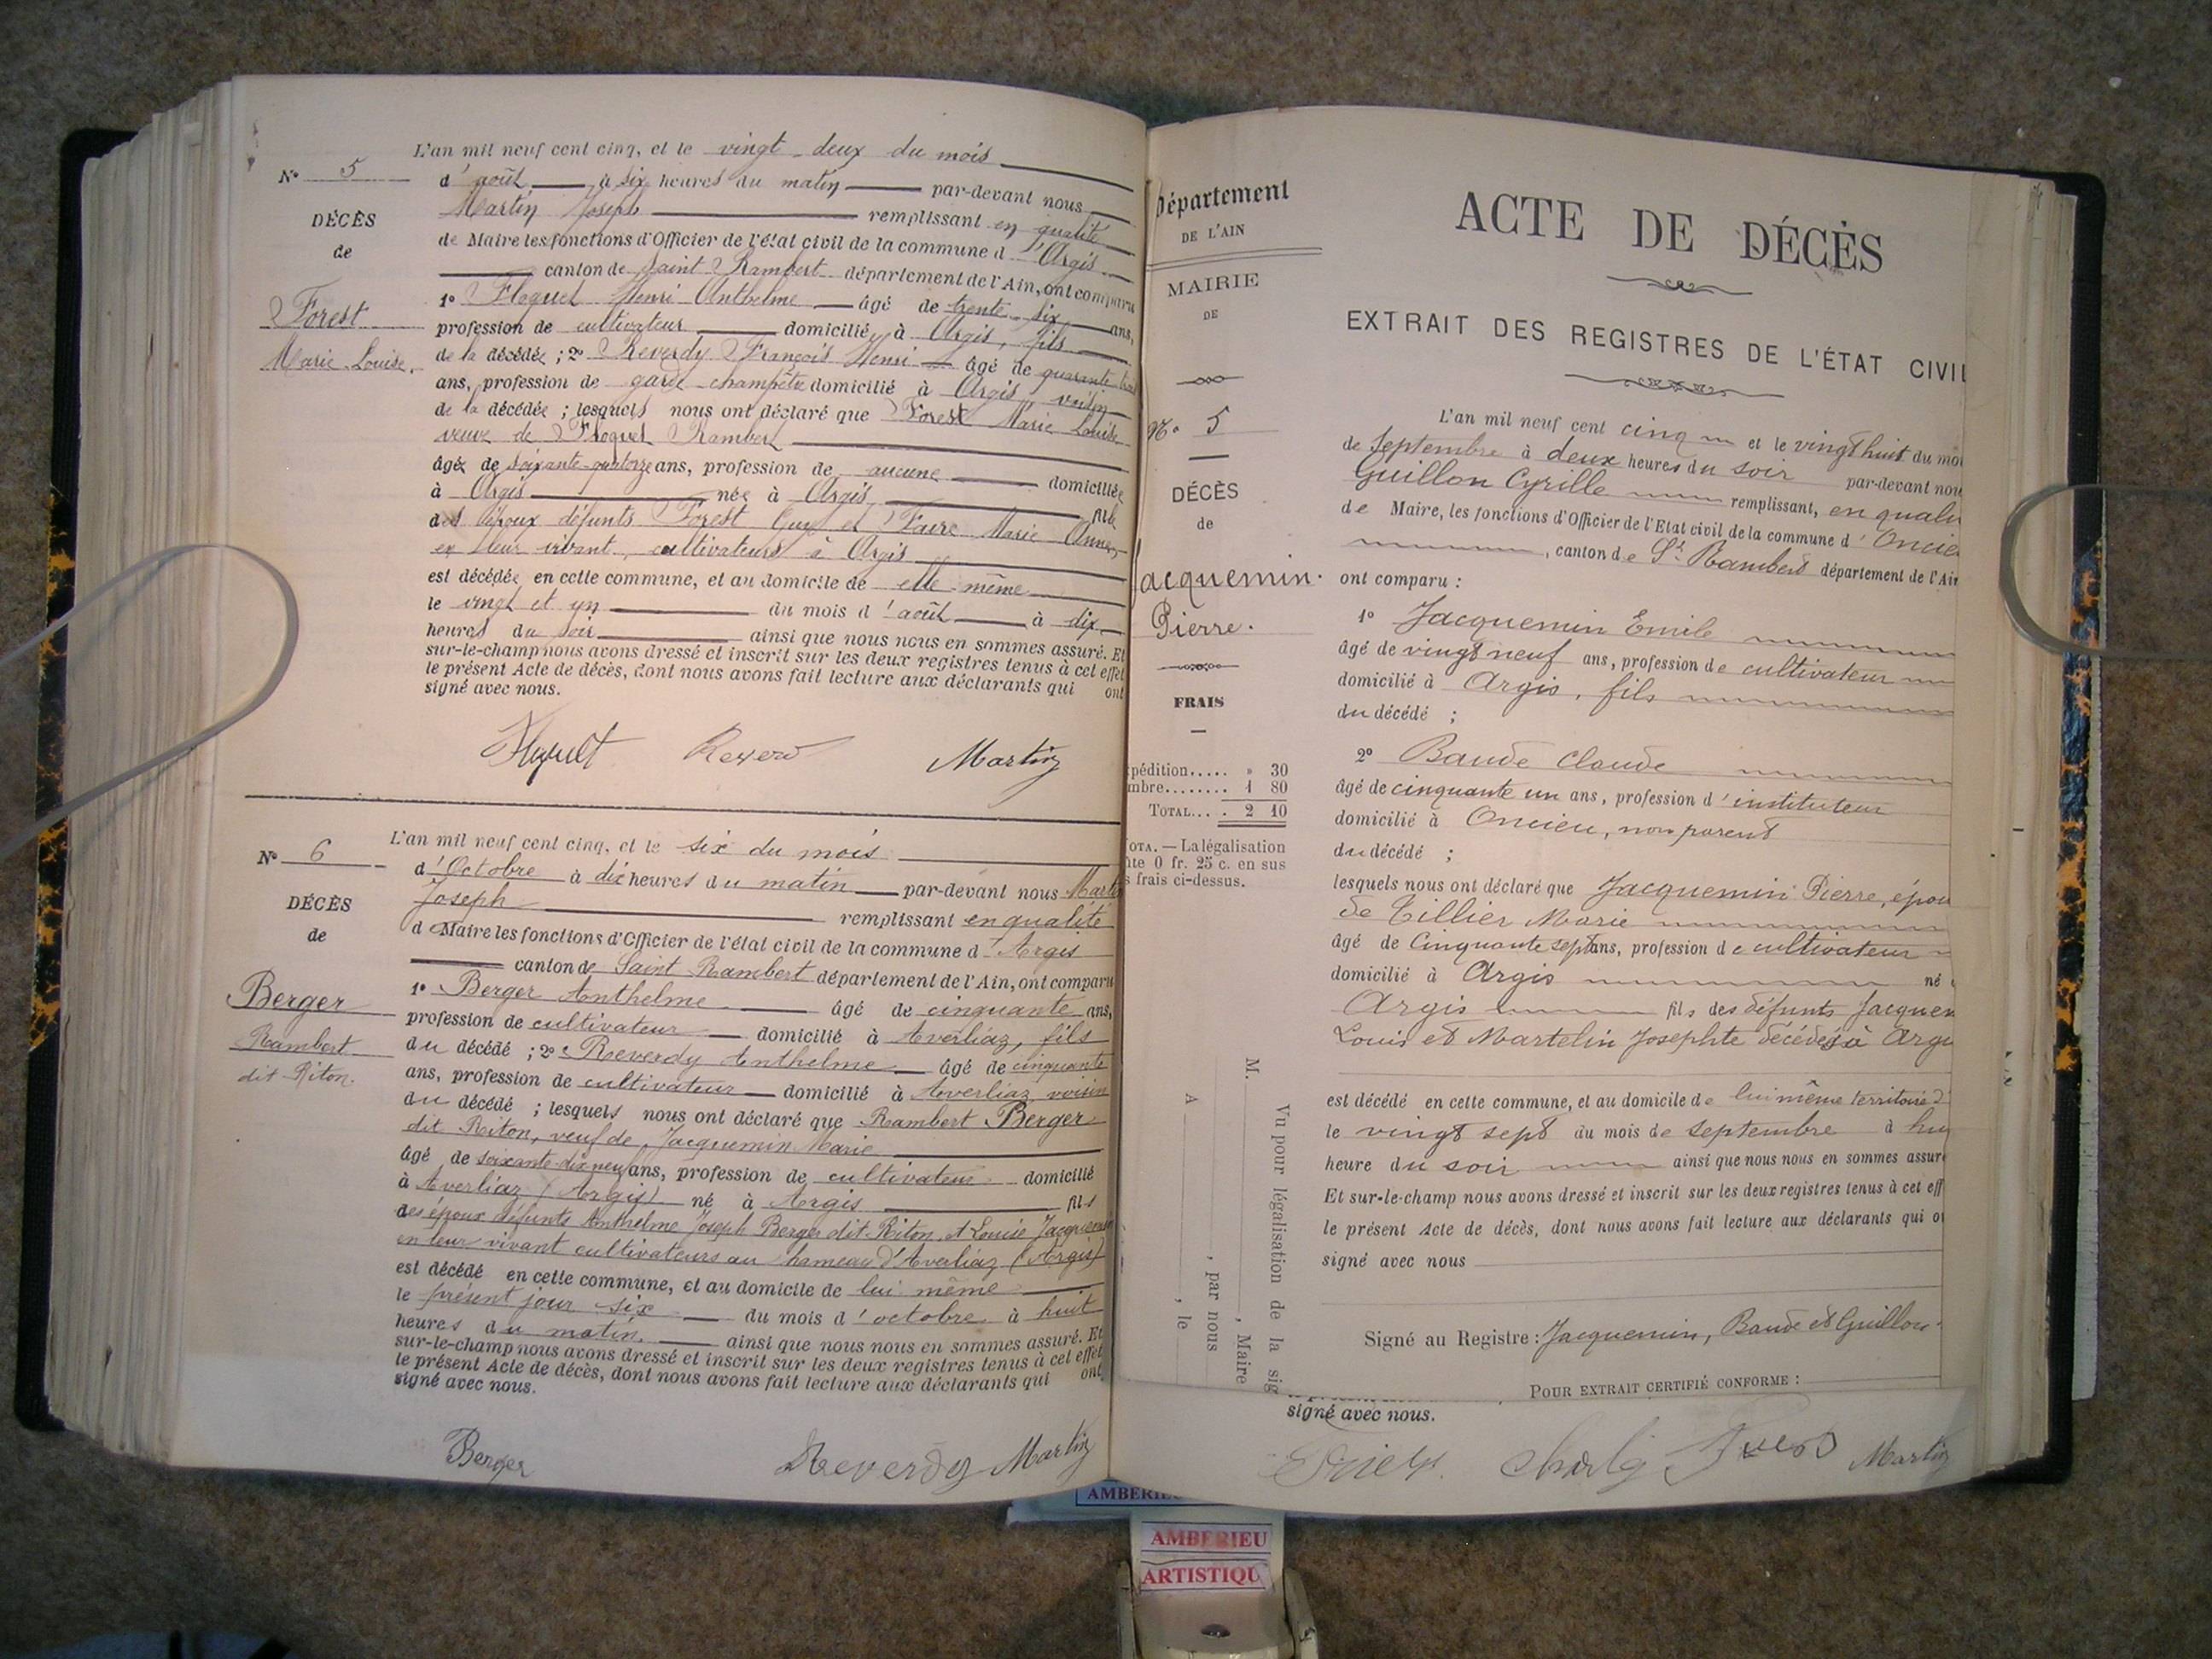 L'an mil neuf cent cinq, et le vingt-deux du mois
N° 5
d'août à six heures du matin par-devant nous
Martin Joseph remplissant en qualité
DÉCÈS
de Maire les fonctions d'Officier de l'état civil de la commune d'Argis
de
canton de Saint Rambert département de l'Ain, ont comparu
1° Floquet Henri Anthelme âgé de trente-six ans,
Forest
profession de cultivateur domicilié à Argis, fils
Marie Louise.
de la décédée ; 2° Reverdy François Henri âgé de quarante trois
ans, profession de garde-champêtre domicilié à Argis voisin
de la décédée ; lesquels nous ont déclaré que Forest Marie Louise
veuve de Floquet Rambert
âgée de soixante-quatorze ans, profession de aucune domiciliée
à Argis née à Argis fille
des époux défunts Forest Guy et Faure Marie Anne,
en leur vivant, cultivateurs à Argis
est décédée en cette commune, et au domicile de elle-même
le vingt et un du mois d'août à dix
heures du soir ainsi que nous nous en sommes assuré. Et
sur-le-champ nous avons dressé et inscrit sur les deux registres tenus à cet effet
le présent Acte de décès, dont nous avons fait lecture aux déclarants qui ont
signé avec nous.
Martin
L'an mil neuf cent cinq, et le six du mois
N° 6
d'Octobre à dix heures du matin par-devant nous Martin
DÉCÈS
Joseph remplissant en qualité
de
de Maire les fonctions d'Officier de l'état civil de la commune d'Argis
canton de Saint Rambert département de l'Ain, ont comparu
Berger
1° Berger Anthelme âgé de cinquante ans,
Rambert
profession de cultivateur domicilié à Averliaz, fils
dit Riton.
du décédé ; 2° Reverdy Anthelme âgé de cinquante
ans, profession de cultivateur domicilié à Averliaz voisin
du décédé ; lesquels nous ont déclaré que Rambert Berger
dit Riton, veuf de Jacquemin Marie
âgé de soixante-dix neuf ans, profession de cultivateur domicilié
à Averliaz (Argis) né à Argis fils
des époux défunts Anthelme Joseph Berger dit Riton et Louise Jacquemin
en leur vivant cultivateurs au hameau d'Averliaz (Argis)
est décédé en cette commune, et au domicile de lui même
le présent jour six du mois d'octobre à huit
heures du matin. ainsi que nous nous en sommes assuré. Et
sur-le-champ nous avons dressé et inscrit sur les deux registres tenus à cet effet
le présent Acte de décès, dont nous avons fait lecture aux déclarants qui ont
signé avec nous.
Berger Reverdy Martin
Département
DE L'AIN
MAIRIE
DE
N° 5
DÉCÈS
de
Jacquemin.
Pierre.
FRAIS
pédition..... » 30
mbre........ 1 80
TOTAL.... 2 10
OTA. — La légalisation
ûte 0 fr. 25 c. en sus
s frais ci-dessus.
Vu pour légalisation de la sig
M. , Maire
, par nous
A , le
ACTE DE DÉCÈS
EXTRAIT DES REGISTRES DE L'ÉTAT CIVIL
L'an mil neuf cent cinq et le vingt huit du moi
de Septembre à deux heures du soir par-devant nou
Guillon Cyrille remplissant, en quali
de Maire, les fonctions d'Officier de l'Etat civil de la commune d'Oncie
, canton de St Rambert département de l'Ain
ont comparu :
1° Jacquemin Emile
âgé de vingt neuf ans, profession de cultivateur
domicilié à Argis, fils
du décédé ;
2° Baude Claude
âgé de cinquante un ans, profession d'instituteur
domicilié à Oncieu, non parent
du décédé ;
lesquels nous ont déclaré que Jacquemin Pierre, épou
de Tillier Marie
âgé de Cinquante sept ans, profession de cultivateur
domicilié à Argis né
Argis fils des défunts Jacquem
Louis et Martelin Josephte décédés à Argi
est décédé en cette commune, et au domicile de lui même territoire d'
le vingt sept du mois de septembre à hu
heure du soir ainsi que nous nous en sommes assuré
Et sur-le-champ nous avons dressé et inscrit sur les deux registres tenus à cet eff
le présent Acte de décès, dont nous avons fait lecture aux déclarants qui o
signé avec nous
Signé au Registre : Jacquemin, Baude et Guillon.
POUR EXTRAIT CERTIFIÉ CONFORME :
signé avec nous.
Martin
AMBERIEU
AMBERIEU
ARTISTIQU